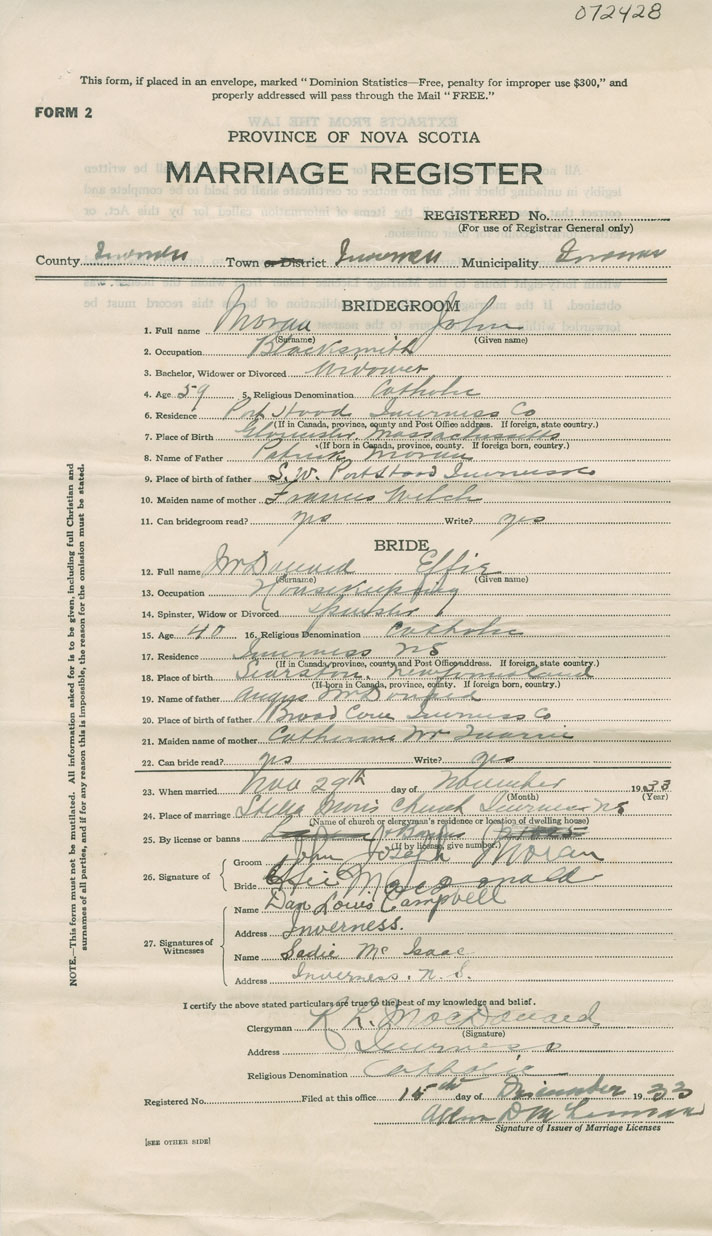 072428
This form, if placed in an envelope, marked "Dominion Statistics—Free, penalty for improper use $300," and
properly addressed will pass through the Mail "FREE."
FORM 2
PROVINCE OF NOVA SCOTIA
MARRIAGE REGISTER
REGISTERED No.
(For use of Registrar General only)
County Inverness Town or District Inverness Municipality Inverness
BRIDEGROOM
1. Full name Moran John
(Surname) (Given name)
2. Occupation Blacksmith
3. Bachelor, Widower or Divorced Widower
4. Age 59 5. Religious Denomination Catholic
6. Residence Port Hood Inverness Co
(If in Canada, province, county and Post Office address. If foreign, state country.)
7. Place of Birth Massachusetts
(If born in Canada, province, county. If foreign born, country.)
8. Name of Father Patrick Moran
9. Place of birth of father S.W. Port Hood Inverness Co
10. Maiden name of mother Frances Welch
11. Can bridegroom read? yes Write? yes
BRIDE
12. Full name McDonald Effie
(Surname) (Given name)
13. Occupation Housekeeping
14. Spinster, Widow or Divorced Spinster
15. Age 40 16. Religious Denomination Catholic
17. Residence Inverness NS
(If in Canada, province, county and Post Office address. If foreign, state country.)
18. Place of Birth Newfoundland
(If born in Canada, province, county. If foreign born, country.)
19. Name of father Angus McDonald
20. Place of birth of father Broad Cove Inverness Co
21. Maiden name of mother Catherine
22. Can bride read? yes Write? yes
23. When married Nov 29th day of November 1933
(Month) (Year)
24. Place of marriage Stella Maris Church Inverness NS
(Name of church or clergyman's residence or location of dwelling house)
25. By license or banns
(If by license, give number.)
26. Signature of
Groom John Joseph Moran
Bride Effie MacDonald
27. Signatures of Witnesses
Name Dan Louis Campbell
Address Inverness.
Name Sadie Mc Isaac
Address Inverness. N.S.
I certify the above stated particulars are true to the best of my knowledge and belief.
Clergyman R. L. MacDonald
(Signature)
Address Inverness
Religious Denomination Catholic
Registered No. Filed at this office 15th day of December 1933
Signature of Issuer of Marriage Licenses
[SEE OTHER SIDE]
NOTE.—This form must not be mutilated. All information asked for is to be given, including full Christian and
surnames of all parties, and if for any reason this is impossible, the reason for the omission must be stated.